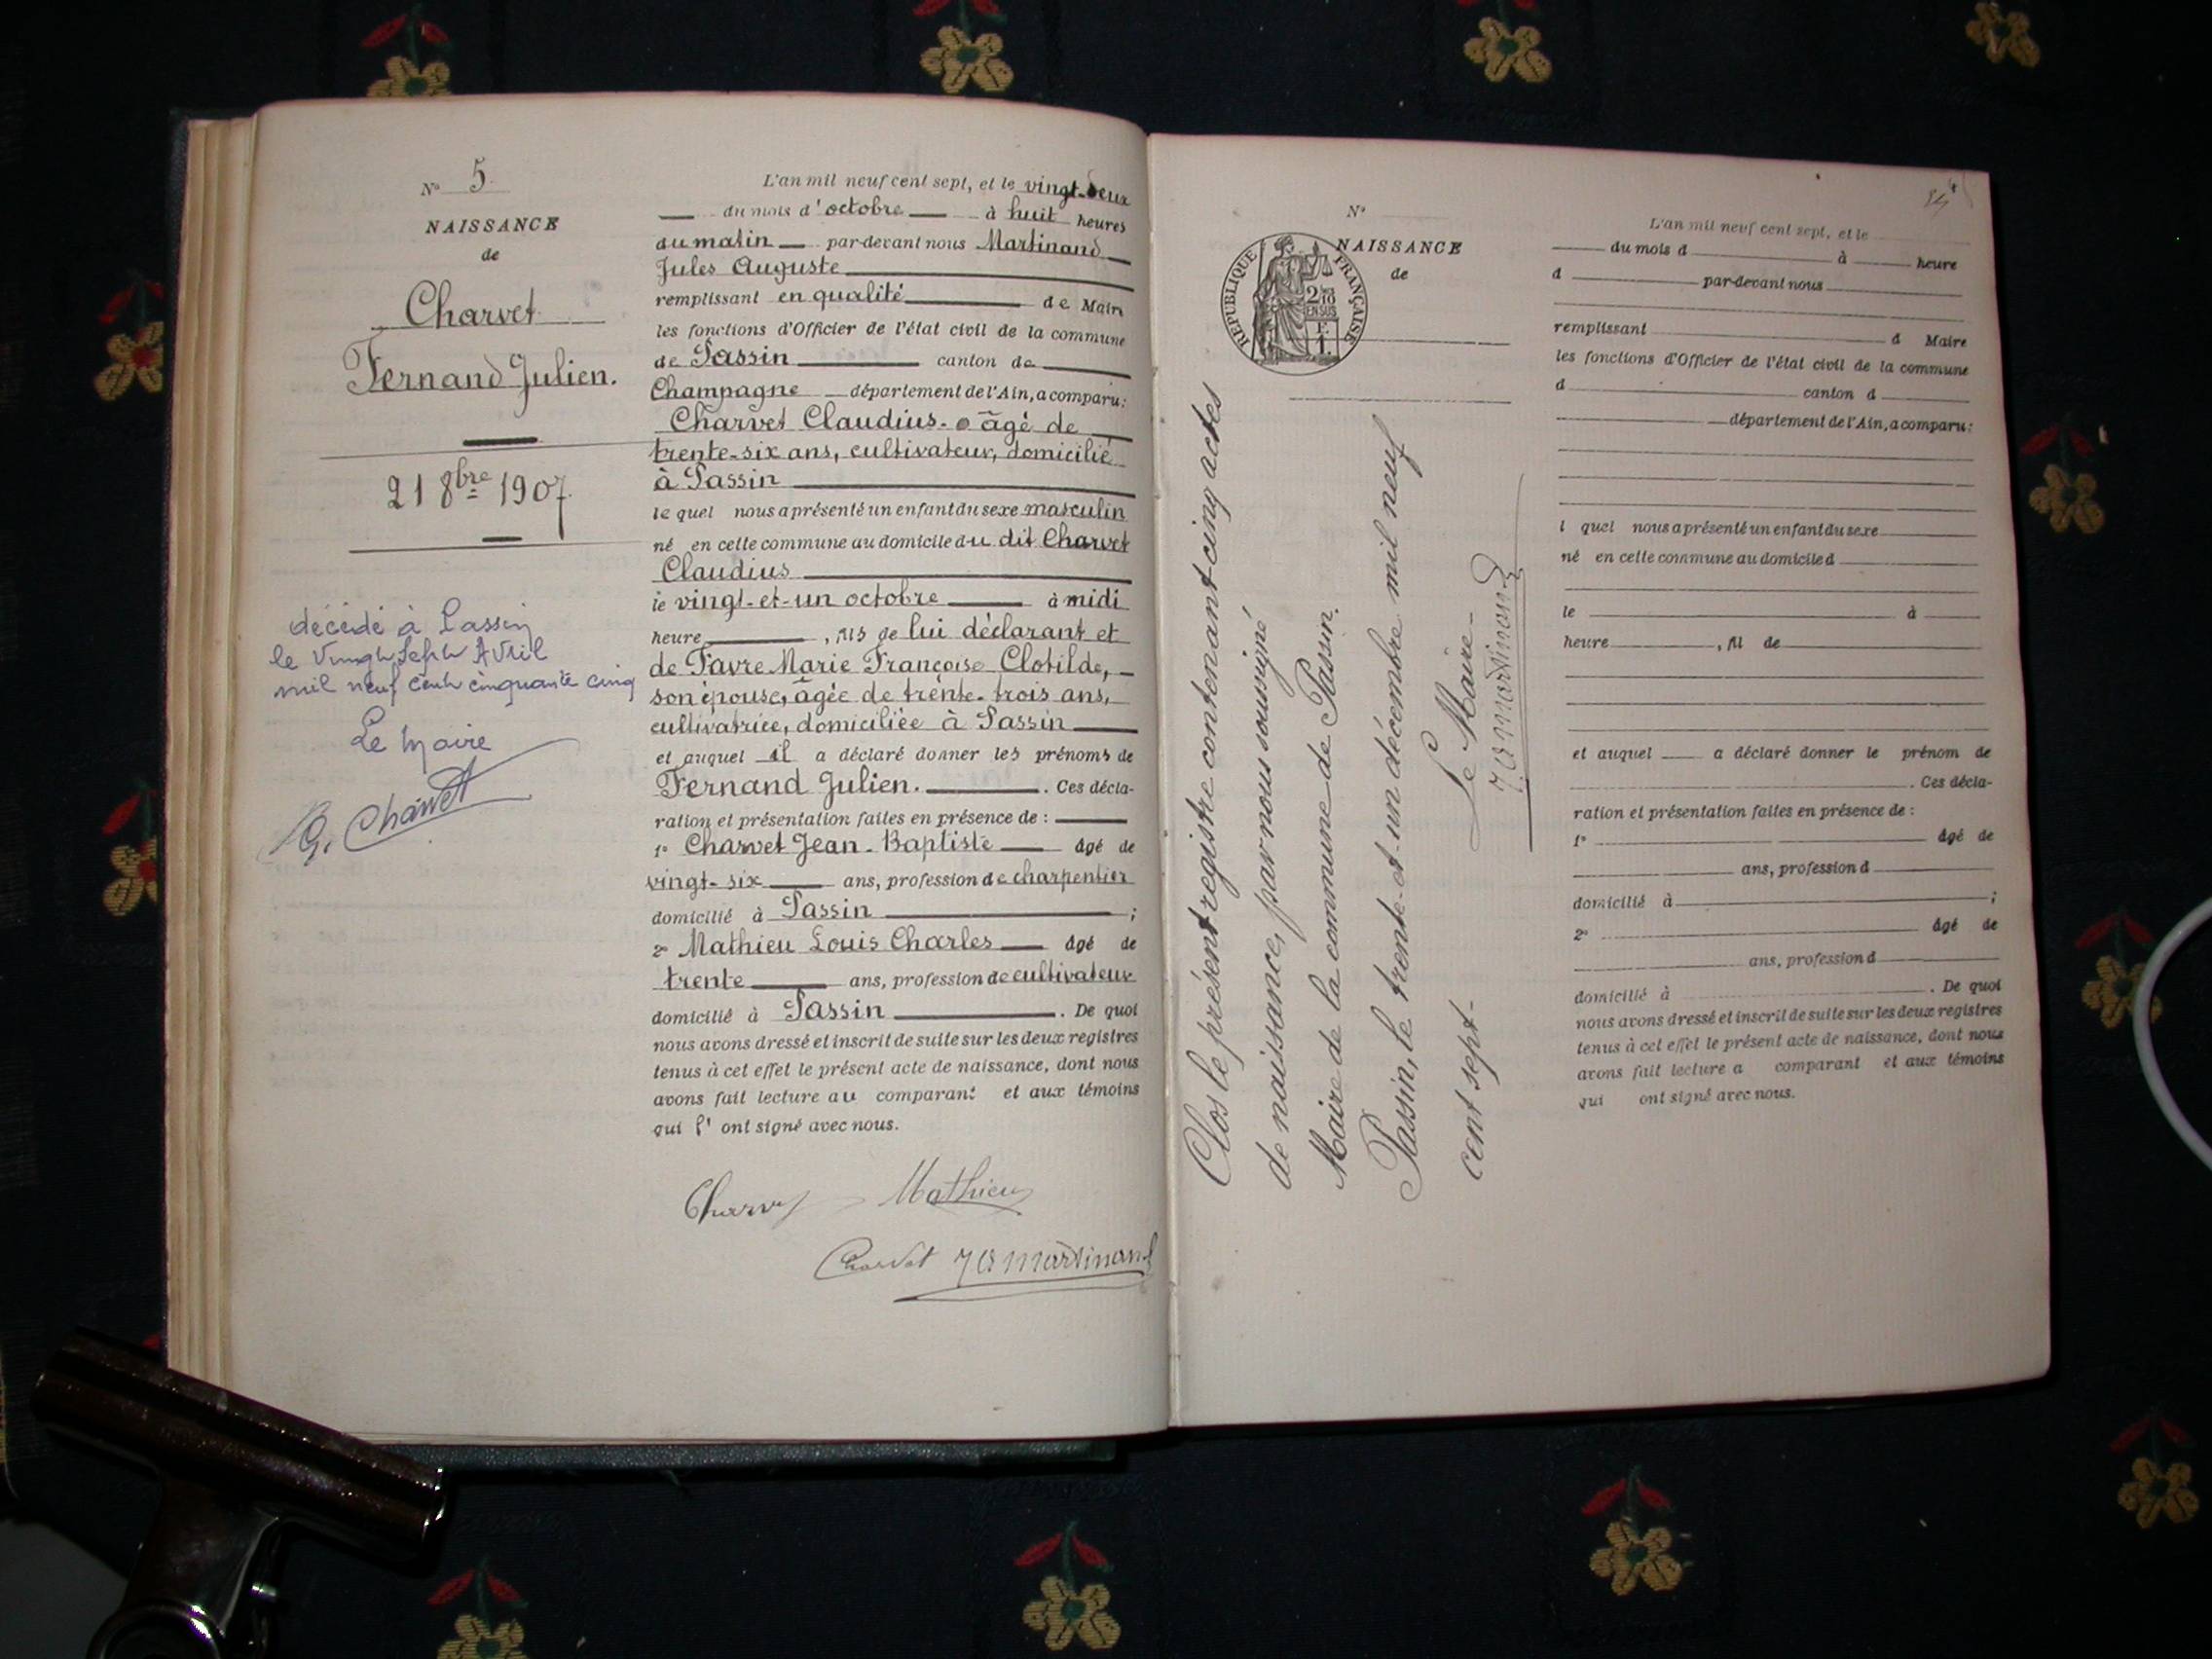 N° 5
NAISSANCE
de
Charvet
Fernand Julien.
21 8bre 1907
décédé à Passin
le Vingt Sept Avril
mil neuf cent cinquante cinq
Le Maire
G. Charvet
L'an mil neuf cent sept, et le vingt-deux
du mois d'octobre à huit heures
du matin par-devant nous Martinand
Jules Auguste
remplissant en qualité de Maire
les fonctions d'Officier de l'état civil de la commune
de Passin canton de
Champagne département de l'Ain, a comparu:
Charvet Claudius. âgé de
trente-six ans, cultivateur, domicilié
à Passin
lequel nous a présenté un enfant du sexe masculin
né en cette commune au domicile du dit Charvet
Claudius
le vingt-et-un octobre à midi
heure, fils de lui déclarant et
de Favre Marie Françoise Clotilde,
son épouse, âgée de trente-trois ans,
cultivatrice, domiciliée à Passin
et auquel il a déclaré donner les prénoms de
Fernand Julien. . Ces décla-
ration et présentation faites en présence de :
1° Charvet Jean-Baptiste âgé de
vingt-six ans, profession de charpentier
domicilié à Passin ;
2° Mathieu Louis Charles âgé de
trente ans, profession de cultivateur
domicilié à Passin . De quoi
nous avons dressé et inscrit de suite sur les deux registres
tenus à cet effet le présent acte de naissance, dont nous
avons fait lecture au comparant et aux témoins
qui l'ont signé avec nous.
Charvet Mathieu
Charvet J A Martinand
N°
NAISSANCE
de
REPUBLIQUE FRANÇAISE
2/10
EN SUS
F.
1.
Clos le présent registre contenant cinq actes
de naissance, par nous soussigné
Maire de la commune de Passin.
Passin, le trente-et-un décembre mil neuf
cent sept.
Le Maire
J A Martinand
L'an mil neuf cent sept, et le
du mois d à heure
d par-devant nous
remplissant d Maire
les fonctions d'Officier de l'état civil de la commune
d canton d
département de l'Ain, a comparu:
l quel nous a présenté un enfant du sexe
né en cette commune au domicile d
le à
heure , fil de
et auquel a déclaré donner le prénom de
. Ces décla-
ration et présentation faites en présence de :
1° âgé de
ans, profession d
domicilié à ;
2° âgé de
ans, profession d
domicilié à . De quoi
nous avons dressé et inscrit de suite sur les deux registres
tenus à cet effet le présent acte de naissance, dont nous
avons fait lecture a comparant et aux témoins
qui ont signé avec nous.